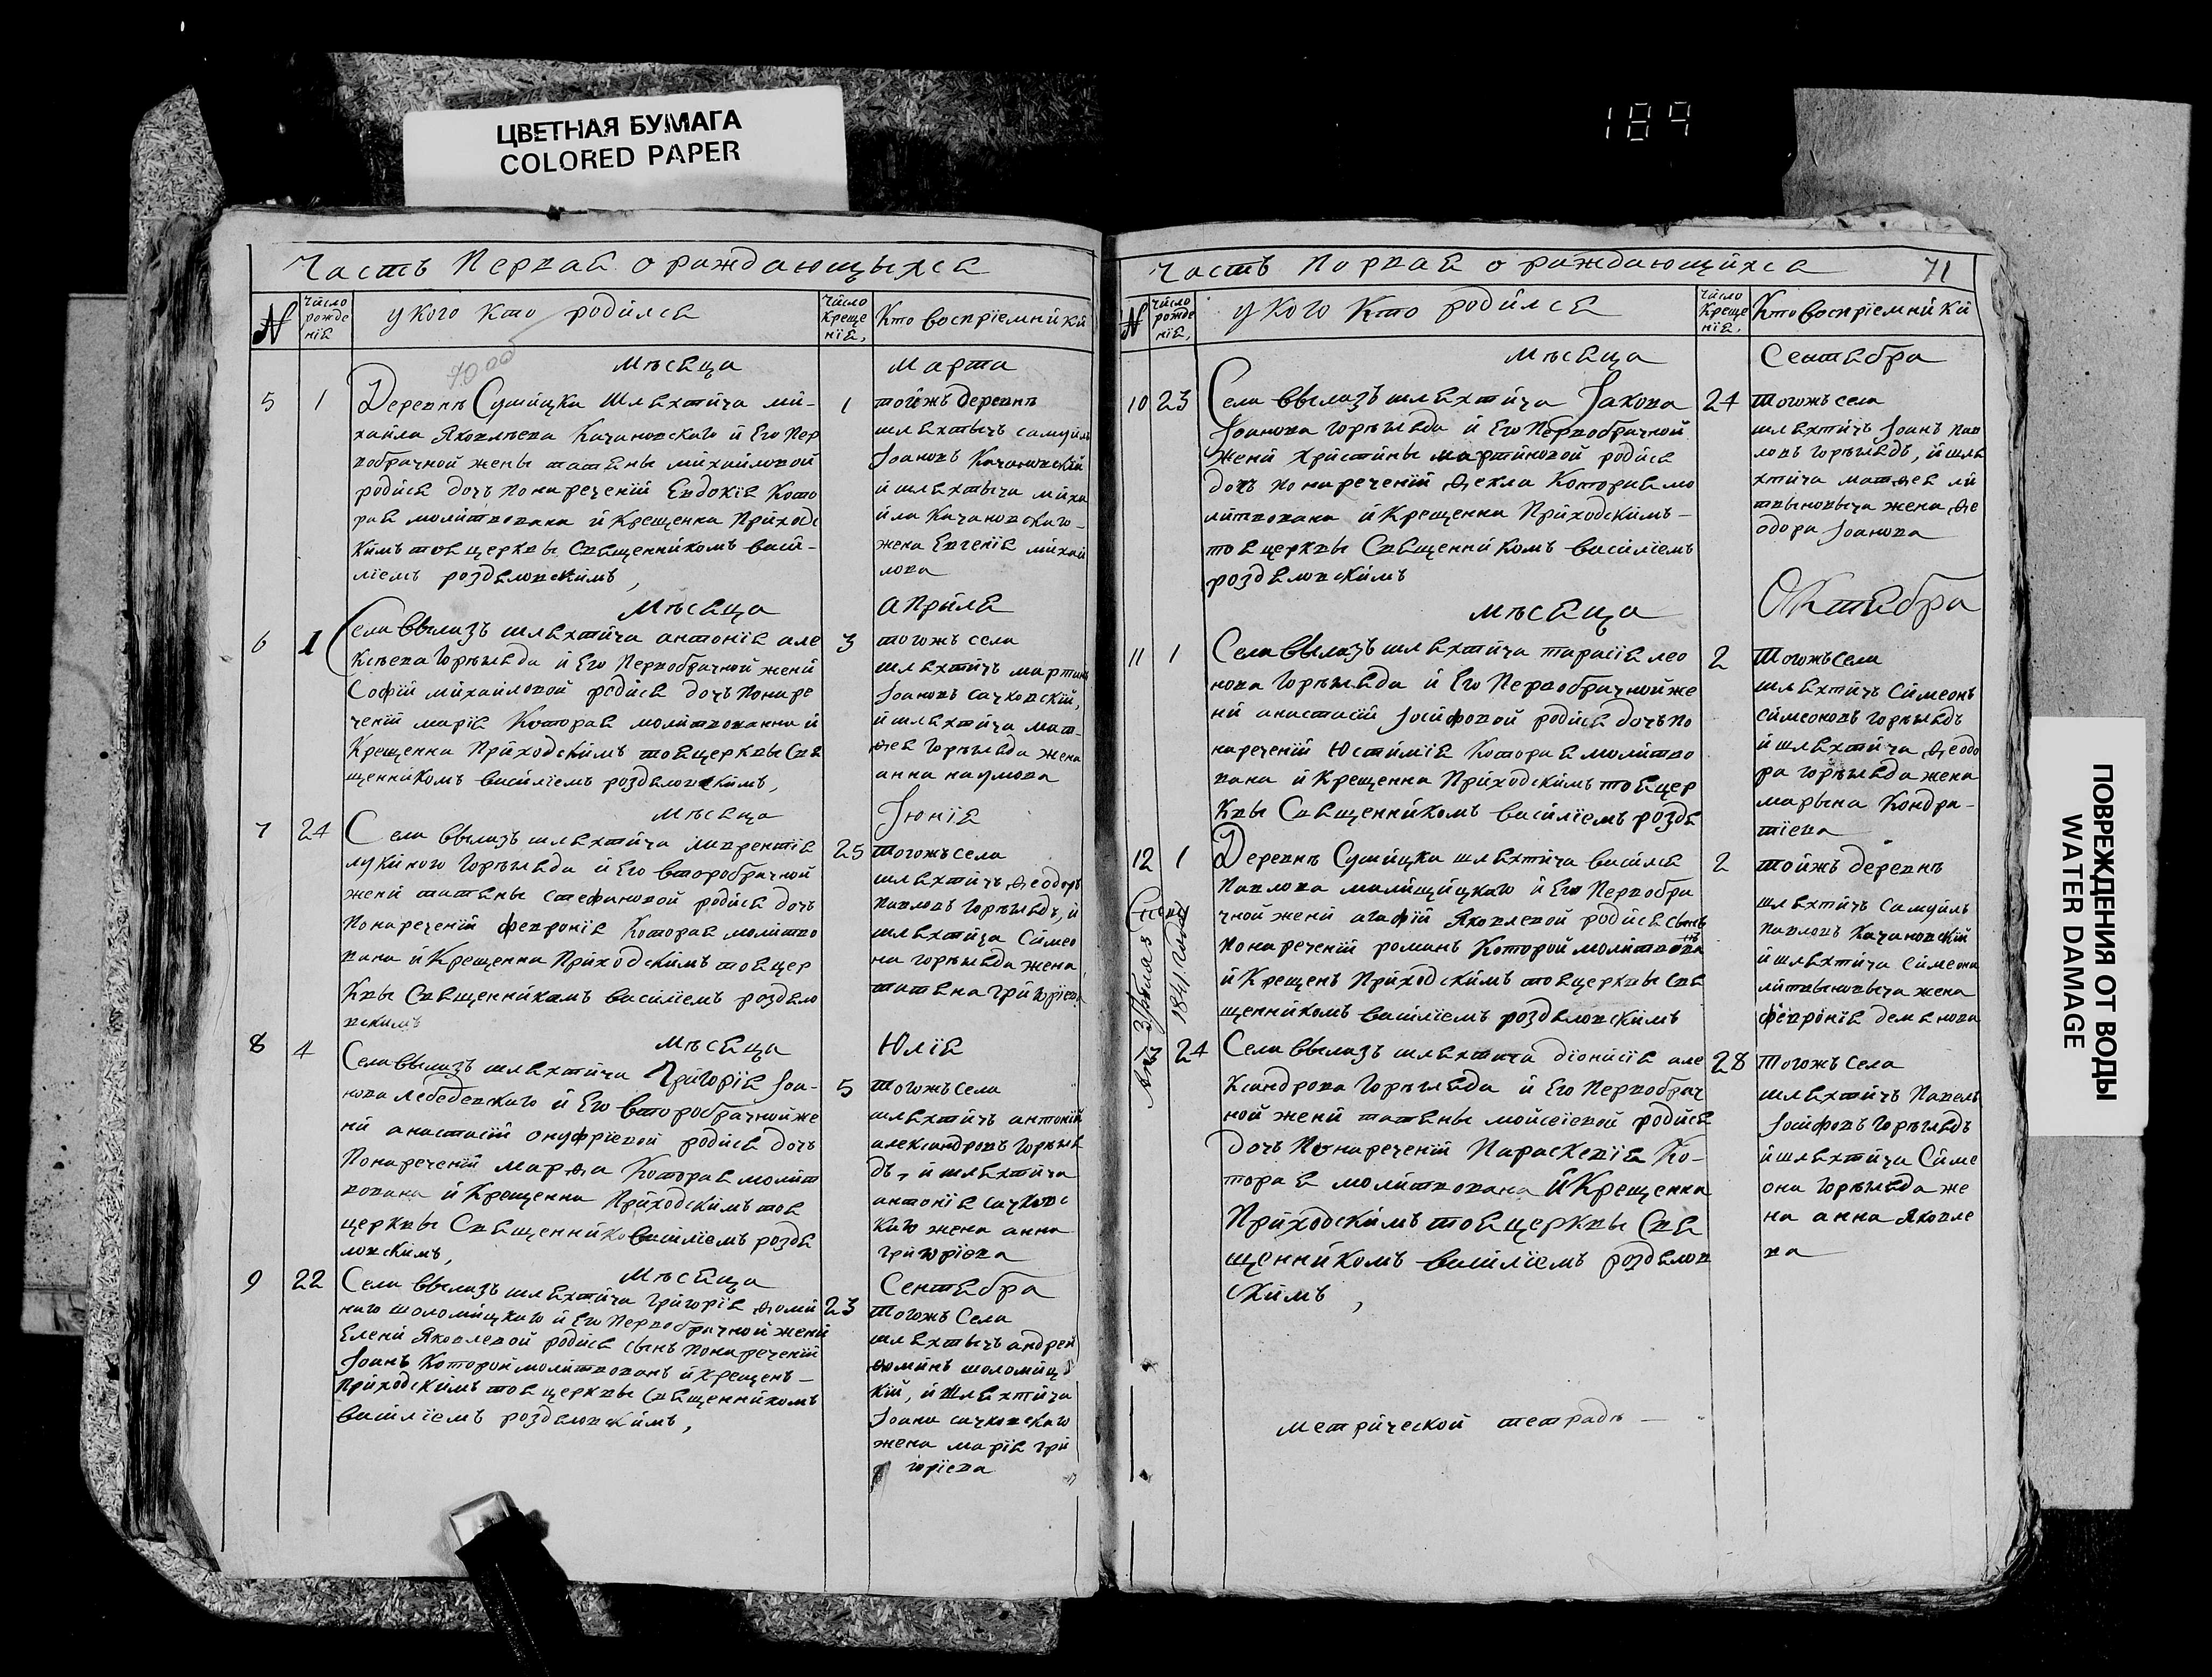 ЦВЕТНАЯ БУМАГА
COLORED PAPER
189
ПОВРЕЖДЕНИЯ ОТ ВОДЫ
WATER DAMAGE
Часть Первая о раждающыхся
N
число рожде нія
у кого кто родился
число креще нія,
Кто воспріемники
Мѣсяца Марта
5 1
Деревнѣ Сушицки Шляхтича ми-
хаила Яковлѣва Качановскаго и Его Пер
вобрачной жены татяны михаиловой
родися дочь по наречении Евдокія Кото
рая молитвована и Крещенна Приходс
кимъ тоя церквы Священникомъ васи-
ліемъ роздяловскимъ,
1
тогижъ деревнѣ
шляхтычъ самуилъ
Іоановъ Качановский
и шляхтыча миха
ила Качановскаго-
жена Евгенія михаи
лова
Мѣсяца Апрыля
6 1
Села ввылазъ шляхтича антонія але
ксѣева Горѣгляда и Его Первобрачной жени
Софіи михаиловой родися дочь по наре
чении марія Которая молитвованна и
Крещенна Приходскимъ тоя церквы Свя
щенникомъ василіемъ роздяловскимъ,
3
тогожъ села
шляхтичъ мартинъ
Іоановъ сачковскій,
и шляхтича мат-
ѳея Горѣгляда жена
анна наумова
Мѣсяца Іюнія
7 24
Села ввылазъ шляхтича лаврентія
лукиного Горѣгляда и Его второбрачной
жени татяны стефановой родися дочь
По наречении февронія Которая молитво
вана и Крещенна Приходскимъ тоя цер
Квы Священникамъ василіемъ роздяло
вскимъ
25
тогожъ села
шляхтичъ ѳеодоръ
Павловъ Горѣглядъ, и
шляхтича Симео
на горѣгляда жена
татяна григоріева
Мѣсяца Юлія
8 4
Села ввылазъ шляхтича Григорія Іоа-
нова Лебедевскаго и Его второбрачной же
ни анастасіи онуфріевой родися дочь
По наречении марѳа Которая молит
вована и Крещенна Приходскимъ тоя
церквы Священнико василіемъ роздя
ловскимъ,
5
тогожъ Села
шляхтичъ антоній
александровъ Горѣгля
дъ, и шляхтича
антонія сачковс
каго жена анна
григоріева
Мѣсяца Сентября
9 22
Села ввылазъ шляхтича Григорія ѳоми
наго шоломицкаго и Его Первобрачной жени
Елени Яковлевой родися сынъ По наречении
Іоанъ Которой молитвованъ и Крещенъ-
Приходскимъ тоя церквы Священникомъ
василіемъ роздяловскимъ,
23
тогожъ Села
шляхтычъ андрей
ѳоминъ шоломицс
кій, и шляхтича
Іоана сачковскаго
жена марія гри
горіева
Часть Первая о раждающихся 71
N
число рожде нія,
у кого кто родился
число креще нія,
Кто воспріемники
Мѣсяца Сентября
10 23
Села ввылазъ шляхтича Іакова
Іоанова горѣгляда и Его Первобрачной
жени христины мартиновой родися
дочь по наречении ѳекла Которая мо
литвована и Крещенна Приходскимъ-
тоя церквы Священникомъ василіемъ
роздяловскимъ
24
тогожъ села
шляхтичъ Іоанъ пав
ловъ горѣглядъ, и шля
хтича матѳея ли
твыновыча жена ѳе
одора Іоанова
Мѣсяца Октября
11 1
Села ввылазъ шляхтича тарасія лео
нова Горѣгляда и Его Первобрачной же
ни анастасіи Іосифовой родися дочь по
наречении Юстимія Которая молитво
вана и Крещенна Приходскимъ тоя цер
Квы Священникомъ василіемъ роздя
2
тогожъ Села
шляхтичъ Симеонъ
симеоновъ горѣглядъ
и шляхтича ѳеодо
ра горѣгляда жена
марына Кондра-
тіева
12 1
Деревнѣ Сушицки шляхтича василя
Павлова малищицкаго и Его Первобра
чной жени агафіи Яковлевой родися сынъ
по наречении романъ Которой молитвованъ
и Крещенъ Приходскимъ тоя церквы Свя
щенникомъ василіемъ роздяловскимъ
2
тойжъ деревнѣ
шляхтичъ самуилъ
Павловъ Качановскій
и шляхтича симеона
литвыновыча жена
февронія демянова
1841 года
13 24
Села ввылазъ шляхтича діонисія але
ксандрова Горѣгляда и Его Первобрач
ной жени татяны мойсеіевой родися
дочь По наречении Параскевія Ко-
торая молитвована и Крещенна
Приходскимъ тоя церквы Свя
щенникомъ василіемъ роздялов
скимъ,
28
тогожъ Села
шляхтичъ Павелъ
Іосифовъ Горѣглядъ
и шляхтича Симе
она Горѣгляда же
на анна Яковле
ва
метрической тетради